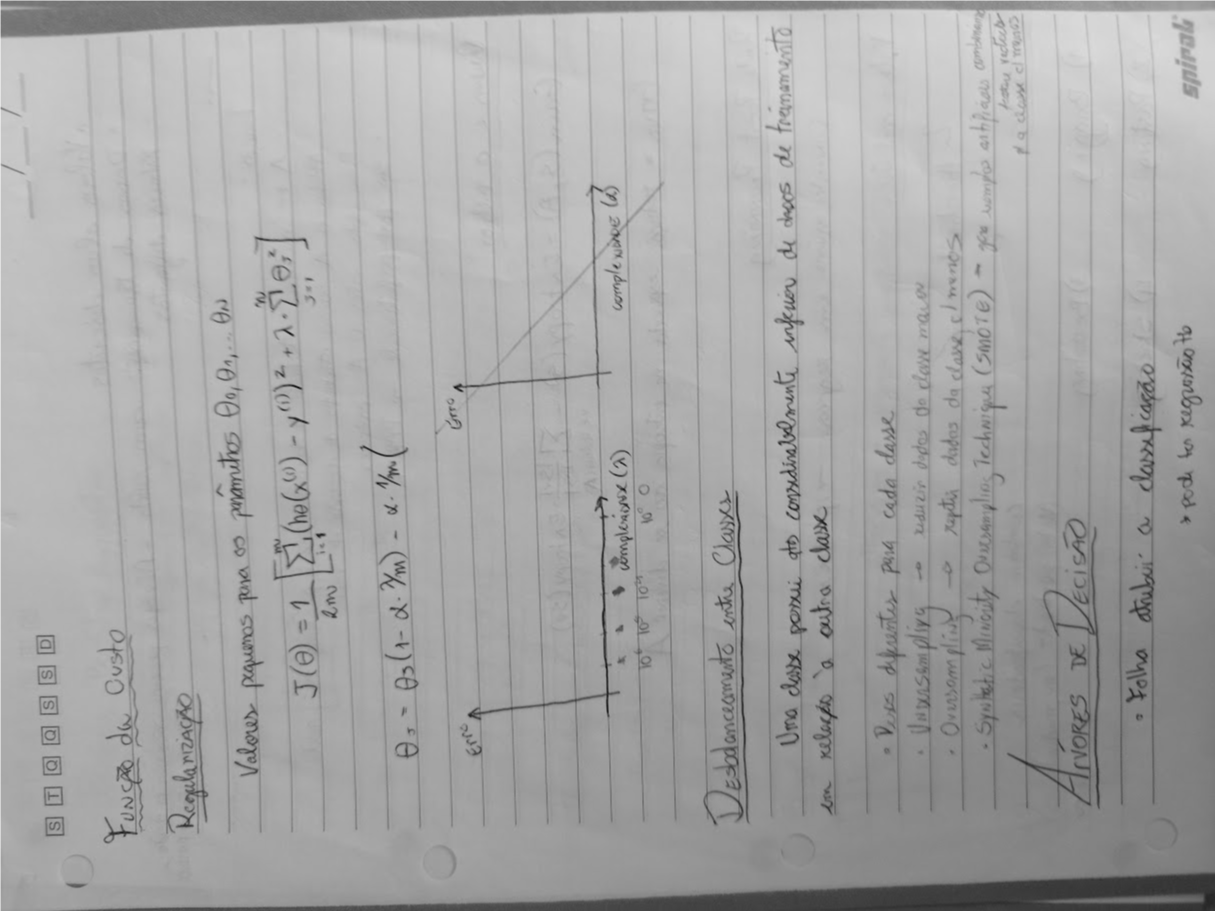 S T Q Q S S D
/ /
Função de Custo
Regularização
Valores pequenos para os parâmetros θ0, θ1, ... θn
J(θ) = 1/2m [ ∑ i=1 m (hθ(x^(i)) - y^(i))² + λ · ∑ j=1 n θj² ]
θj = θj (1 - α · λ/m) - α · 1/m (
Erro
Erro
complexidade (λ)
complexidade (λ)
10⁰ 0
Desbalanceamento entre Classes
Uma classe possui qto considerabelmente inferior de dados de treinamento
em relação à outra classe
Pesos diferentes para cada classe
· Undersampling → reduzir dados da classe maior
· Oversampling → repetir dados da classe c/ menos
· Synthetic Minority Oversampling Technique (SMOTE) - gera amostras artificiais combinando
p/ a classe c/ menos
ÁRVORES DE DECISÃO
Folha atribui a classificação
pode ter regressão tb
spiral